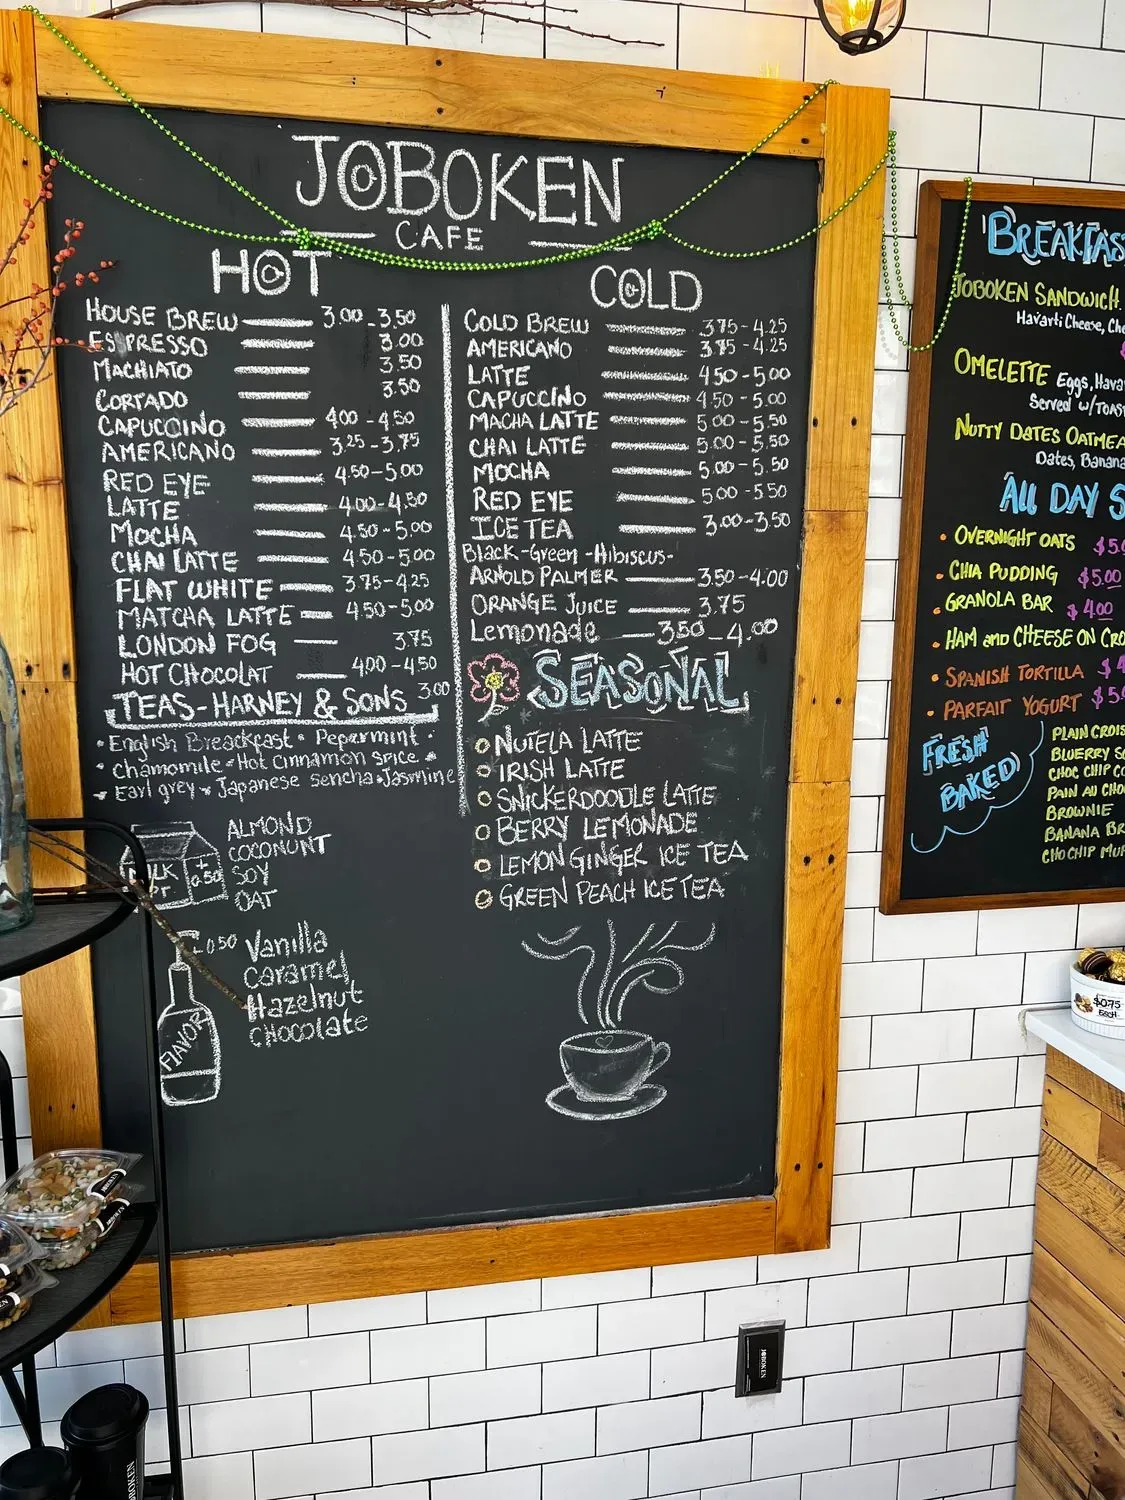 JOBOKEN
CAFE
HOT
HOUSE BREW 3.00 - 3.50
ESPRESSO 3.00
MACHIATO 3.50
CORTADO 3.50
CAPUCCINO 4.00 - 4.50
AMERICANO 3.25 - 3.75
RED EYE 4.50 - 5.00
LATTE 4.00 - 4.50
MOCHA 4.50 - 5.00
CHAI LATTE 4.50 - 5.00
FLAT WHITE 3.75 - 4.25
MATCHA LATTE 4.50 - 5.00
LONDON FOG 3.75
HOT CHOCOLAT 4.00 - 4.50
TEAS - HARNEY & SONS 3.00
• English Breackfast • Pepermint •
• Chamomile • Hot Cinnamon Spice •
• Earl grey • Japanese Sencha • Jasmine
ALMOND
COCONUNT
SOY
OAT
+ 0.50
0.50 Vanilla
Caramel
Hazelnut
CHocolate
FLAVOR
COLD
COLD BREW 3.75 - 4.25
AMERICANO 3.75 - 4.25
LATTE 4.50 - 5.00
CAPUCCINO 4.50 - 5.00
MACHA LATTE 5.00 - 5.50
CHAI LATTE 5.00 - 5.50
MOCHA 5.00 - 5.50
RED EYE 5.00 - 5.50
ICE TEA 3.00 - 3.50
Black - Green - Hibiscus -
ARNOLD PALMER 3.50 - 4.00
ORANGE JUICE 3.75
Lemonade 3.50 - 4.00
SEASONAL
NUTELA LATTE
IRISH LATTE
SNICKERDOODLE LATTE
BERRY LEMONADE
LEMON GINGER ICE TEA
GREEN PEACH ICE TEA
BREAKFAS
JOBOKEN SANDWICH
Havarti Cheese, Che
OMELETTE Eggs, Hava
Served w/TOAS
NUTTY DATES OATMEA
Dates, Banana
ALL DAY S
• OVERNIGHT OATS $5.0
• CHIA PUDDING $5.00
• GRANOLA BAR $4.00
• HAM and CHEESE ON CRO
• SPANISH TORTILLA $4
• PARFAIT YOGURT $5.
FRESH
BAKED
PLAIN CROIS
BLUERRY SC
CHOC CHIP CO
PAIN AU CHO
BROWNIE
BANANA BR
CHOCHIP MUF
$0.75
EACH
JOBOKEN